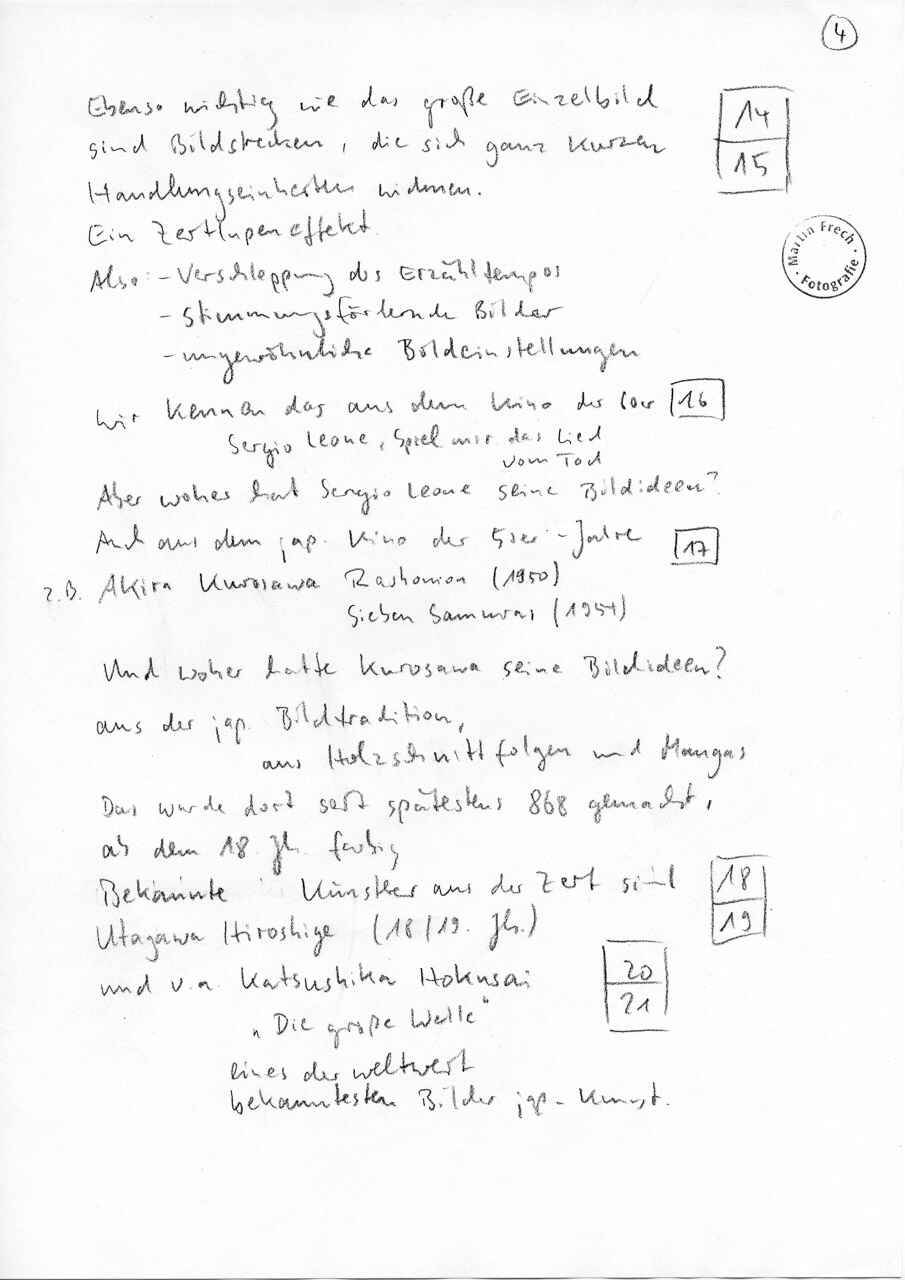 4
Ebenso wichtig wie das große Einzelbild
14
sind Bildstrecken, die sich ganz kurzen
15
Handlungseinheiten widmen.
Ein Zeitlupeneffekt.
Martin Frech · Fotografie ·
Also: - Verschleppung des Erzähltempos
- Stimmungsfördernde Bilder
- ungewöhnliche Bildeinstellungen
Wir kennen das aus dem Kino der 60er 16
Sergio Leone, Spiel mir das Lied
vom Tod
Aber woher hat Sergio Leone seine Bildideen?
Auch aus dem jap. Kino der 50er-Jahre 17
z.B. Akira Kurosawa Rashomon (1950)
Sieben Samurai (1954)
Und woher hatte Kurosawa seine Bildideen?
aus der jap. Bildtradition,
aus Holzschnittfolgen und Mangas
Das wurde dort seit spätestens 868 gemacht,
ab dem 18. Jh. farbig
Bekannte Künstler aus der Zeit sind 18
19
Utagawa Hiroshige (18/19. Jh.)
und v.a. Katsushika Hokusai 20
21
„Die große Welle"
eines der weltweit
bekanntesten Bilder jap. Kunst.